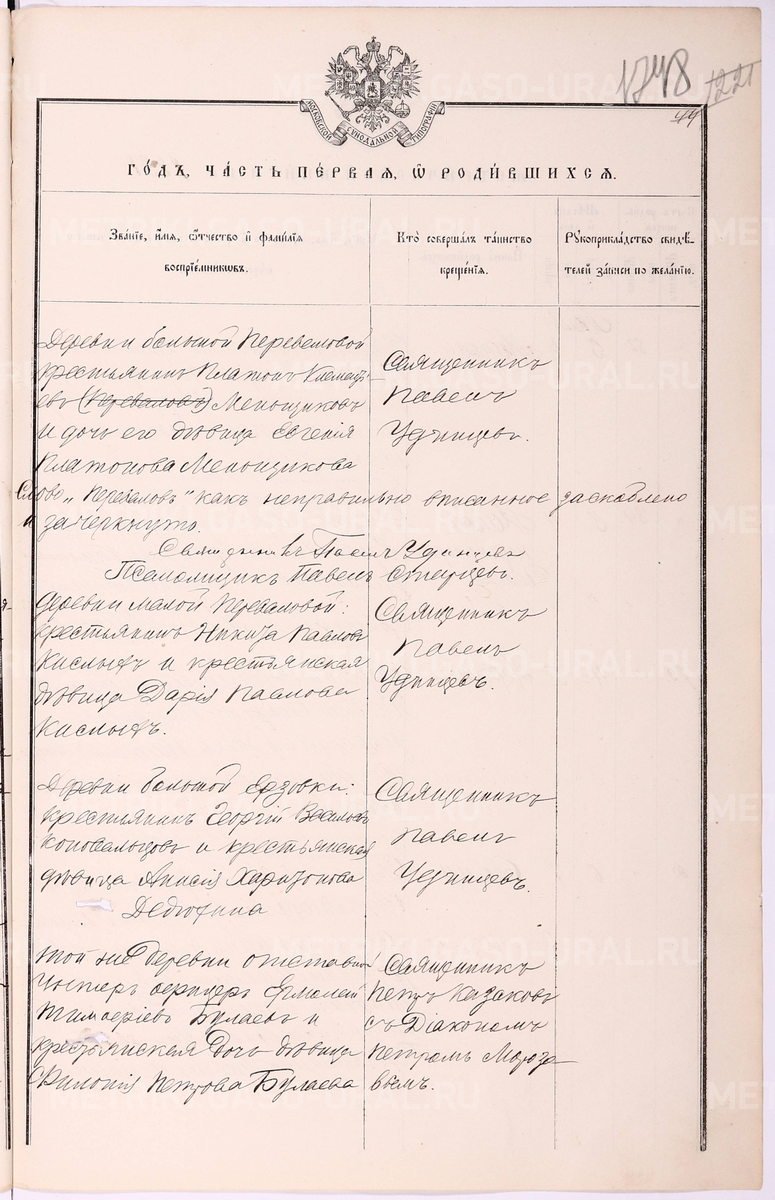 1748 1221
44
МОСКОВСКОЙ СУНОДАЛЬНОЙ ТИПОГРАФІИ
ГО́ДЪ, ЧА́СТЬ ПЕ́РВАЯ, Ѿ РОДИ́ВШИХСЯ.
Зва́нїе, и́мѧ, ѻ҆́тчество и҆ фами́лїѧ воспрїе́мникѡвъ.
Кто̀ соверша́лъ та́инство креще́нїѧ.
Рꙋкоприкла́дство свидѣ́телей за́писи по жела́нїю.
Деревни большой Переваловой
крестьянинъ Платонъ Климентъ-
евъ (Переваловъ) Меньщиковъ
и дочь его дѣвица Евгенія
Платонова Меньщикова
Священникъ
Павелъ
Удинцевъ.
Слово „Переваловъ" какъ неправильно вписанное заскоблено
и зачеркнуто.
Священникъ Павелъ Удинцевъ
Псаломщикъ Павелъ Старцев.
Деревни малой Переваловой:
крестьянинъ Никита Павловъ
Кислыхъ и крестьянская
дѣвица Дарія Павлова
Кислыхъ.
Священникъ
Павелъ
Удинцевъ.
Деревни большой Ерзовки:
крестьянинъ Георгій Васильевъ
Коновальцовъ и крестьянская
дѣвица Анисія Харитонова
Дедюхина
Священникъ
Павелъ
Удинцевъ.
той же деревни отставной
унтеръ офицеръ Ермолай
Тимофеѣвъ Булаевъ и
крестьянская дочь дѣвица
Филонія Петрова Булаева
Священникъ
Петръ Казаковъ
съ Діакономъ
Петромъ Мороза
вымъ.